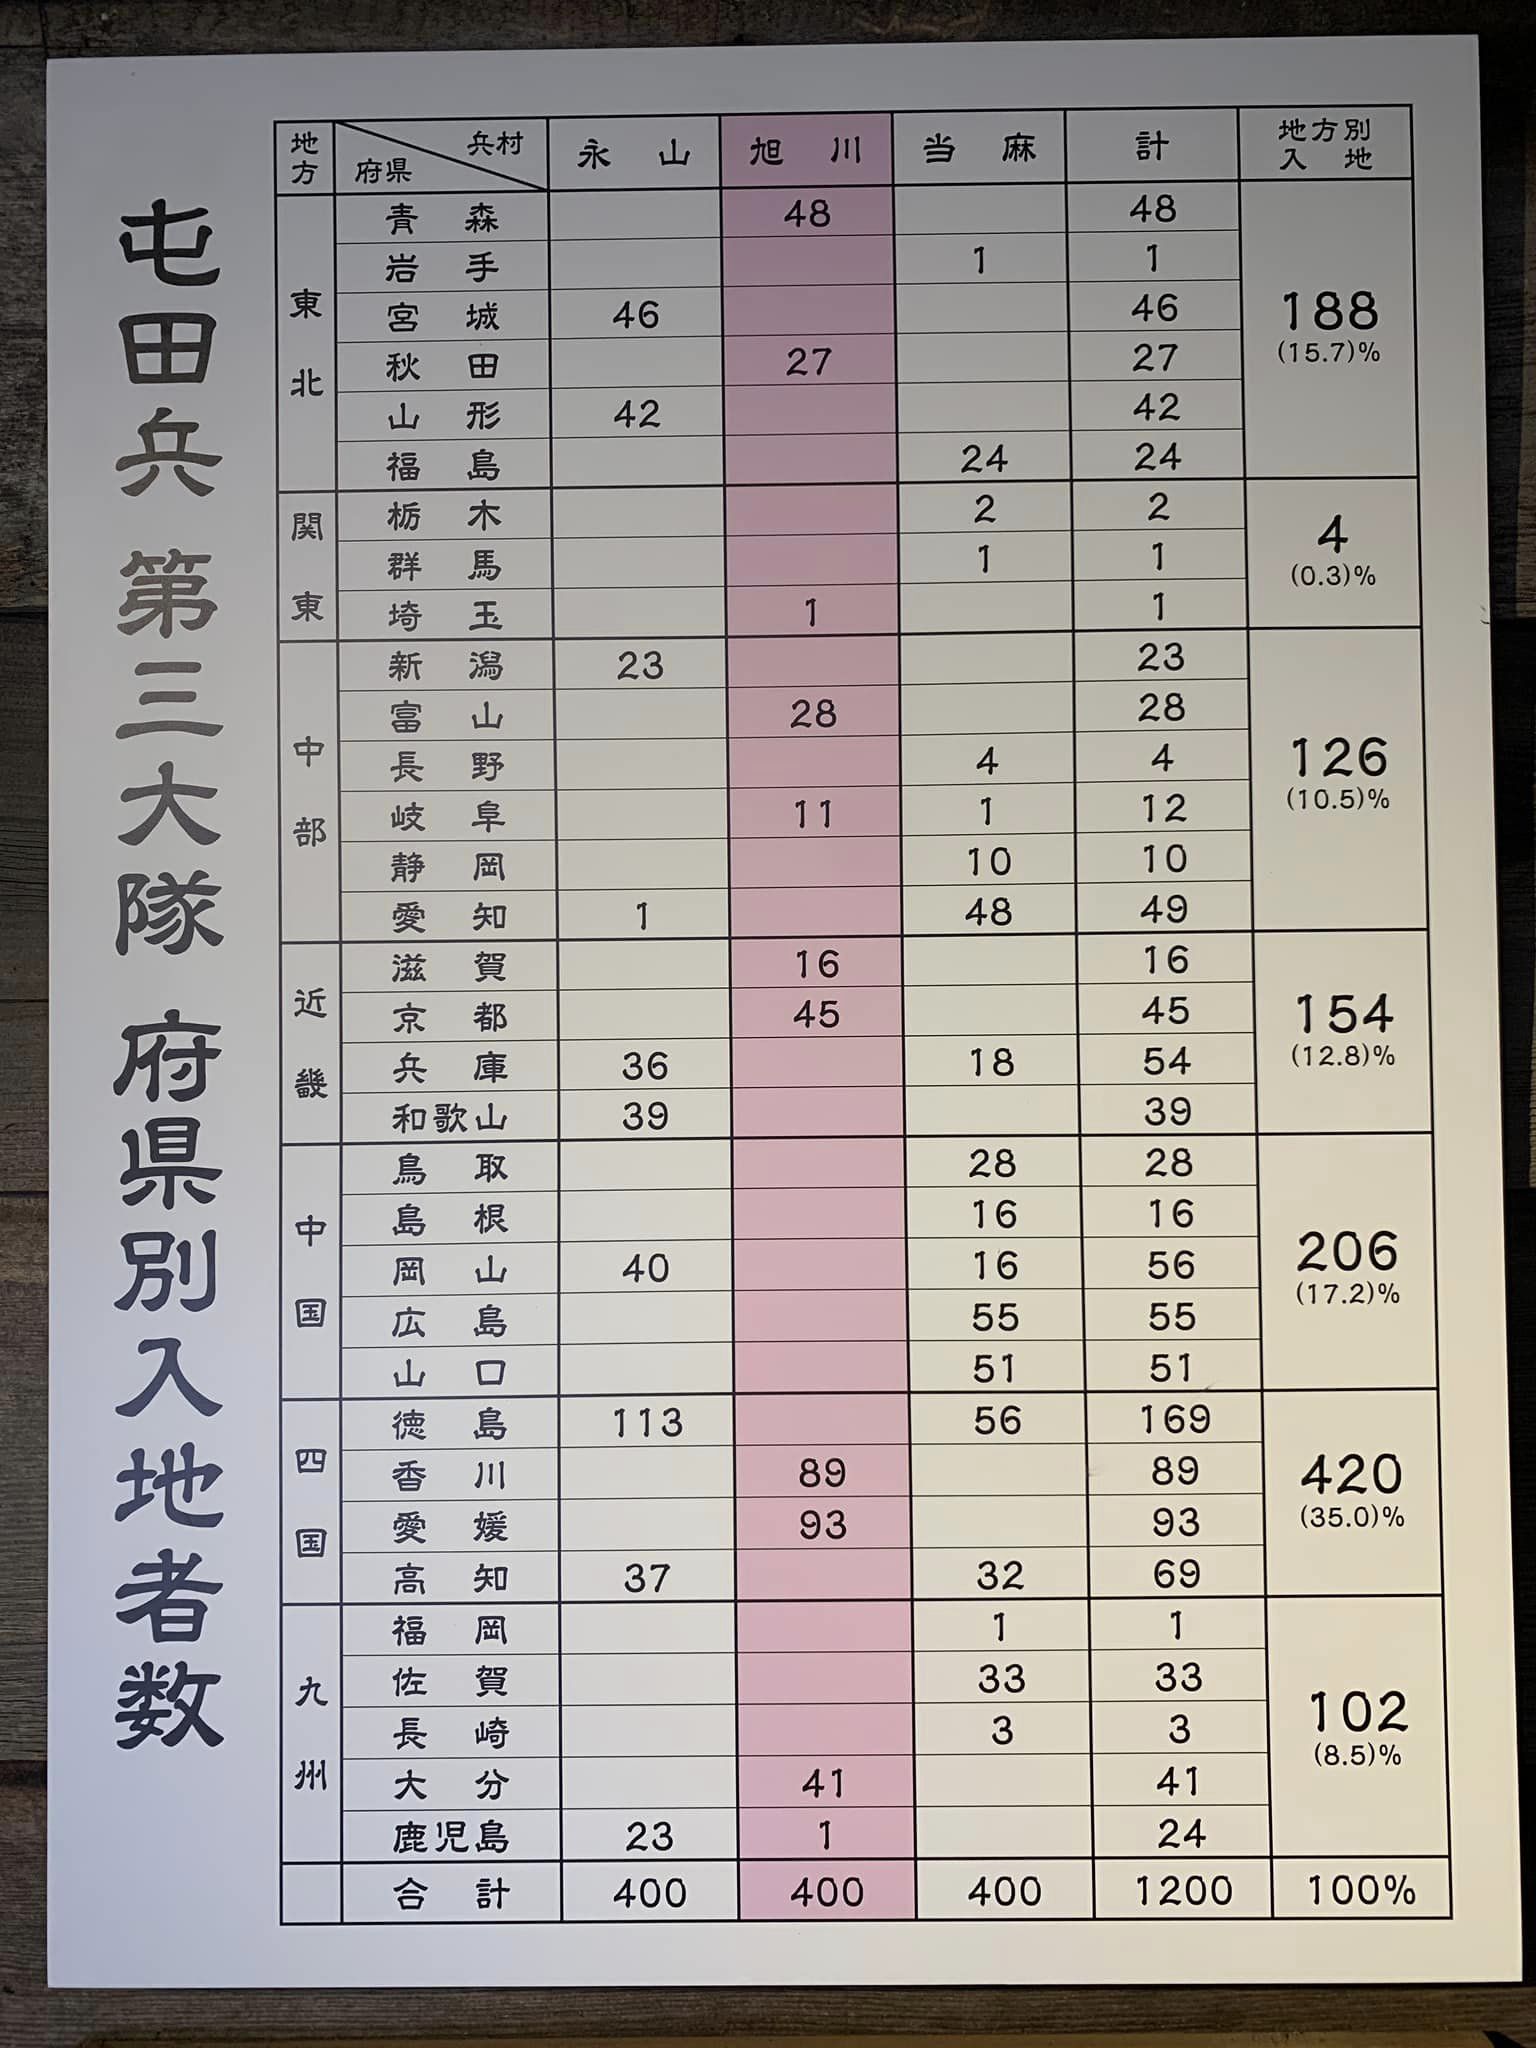 屯田兵 第三大隊 府県別入地者数
地方 兵村 府県 永山 旭川 当麻 計 地方別入地
東北 青森 48 48 188 (15.7)%
岩手 1 1
宮城 46 46
秋田 27 27
山形 42 42
福島 24 24
関東 栃木 2 2 4 (0.3)%
群馬 1 1
埼玉 1 1
中部 新潟 23 23 126 (10.5)%
富山 28 28
長野 4 4
岐阜 11 1 12
静岡 10 10
愛知 1 48 49
近畿 滋賀 16 16 154 (12.8)%
京都 45 45
兵庫 36 18 54
和歌山 39 39
中国 鳥取 28 28 206 (17.2)%
島根 16 16
岡山 40 16 56
広島 55 55
山口 51 51
四国 徳島 113 56 169 420 (35.0)%
香川 89 89
愛媛 93 93
高知 37 32 69
九州 福岡 1 1 102 (8.5)%
佐賀 33 33
長崎 3 3
大分 41 41
鹿児島 23 1 24
合計 400 400 400 1200 100%